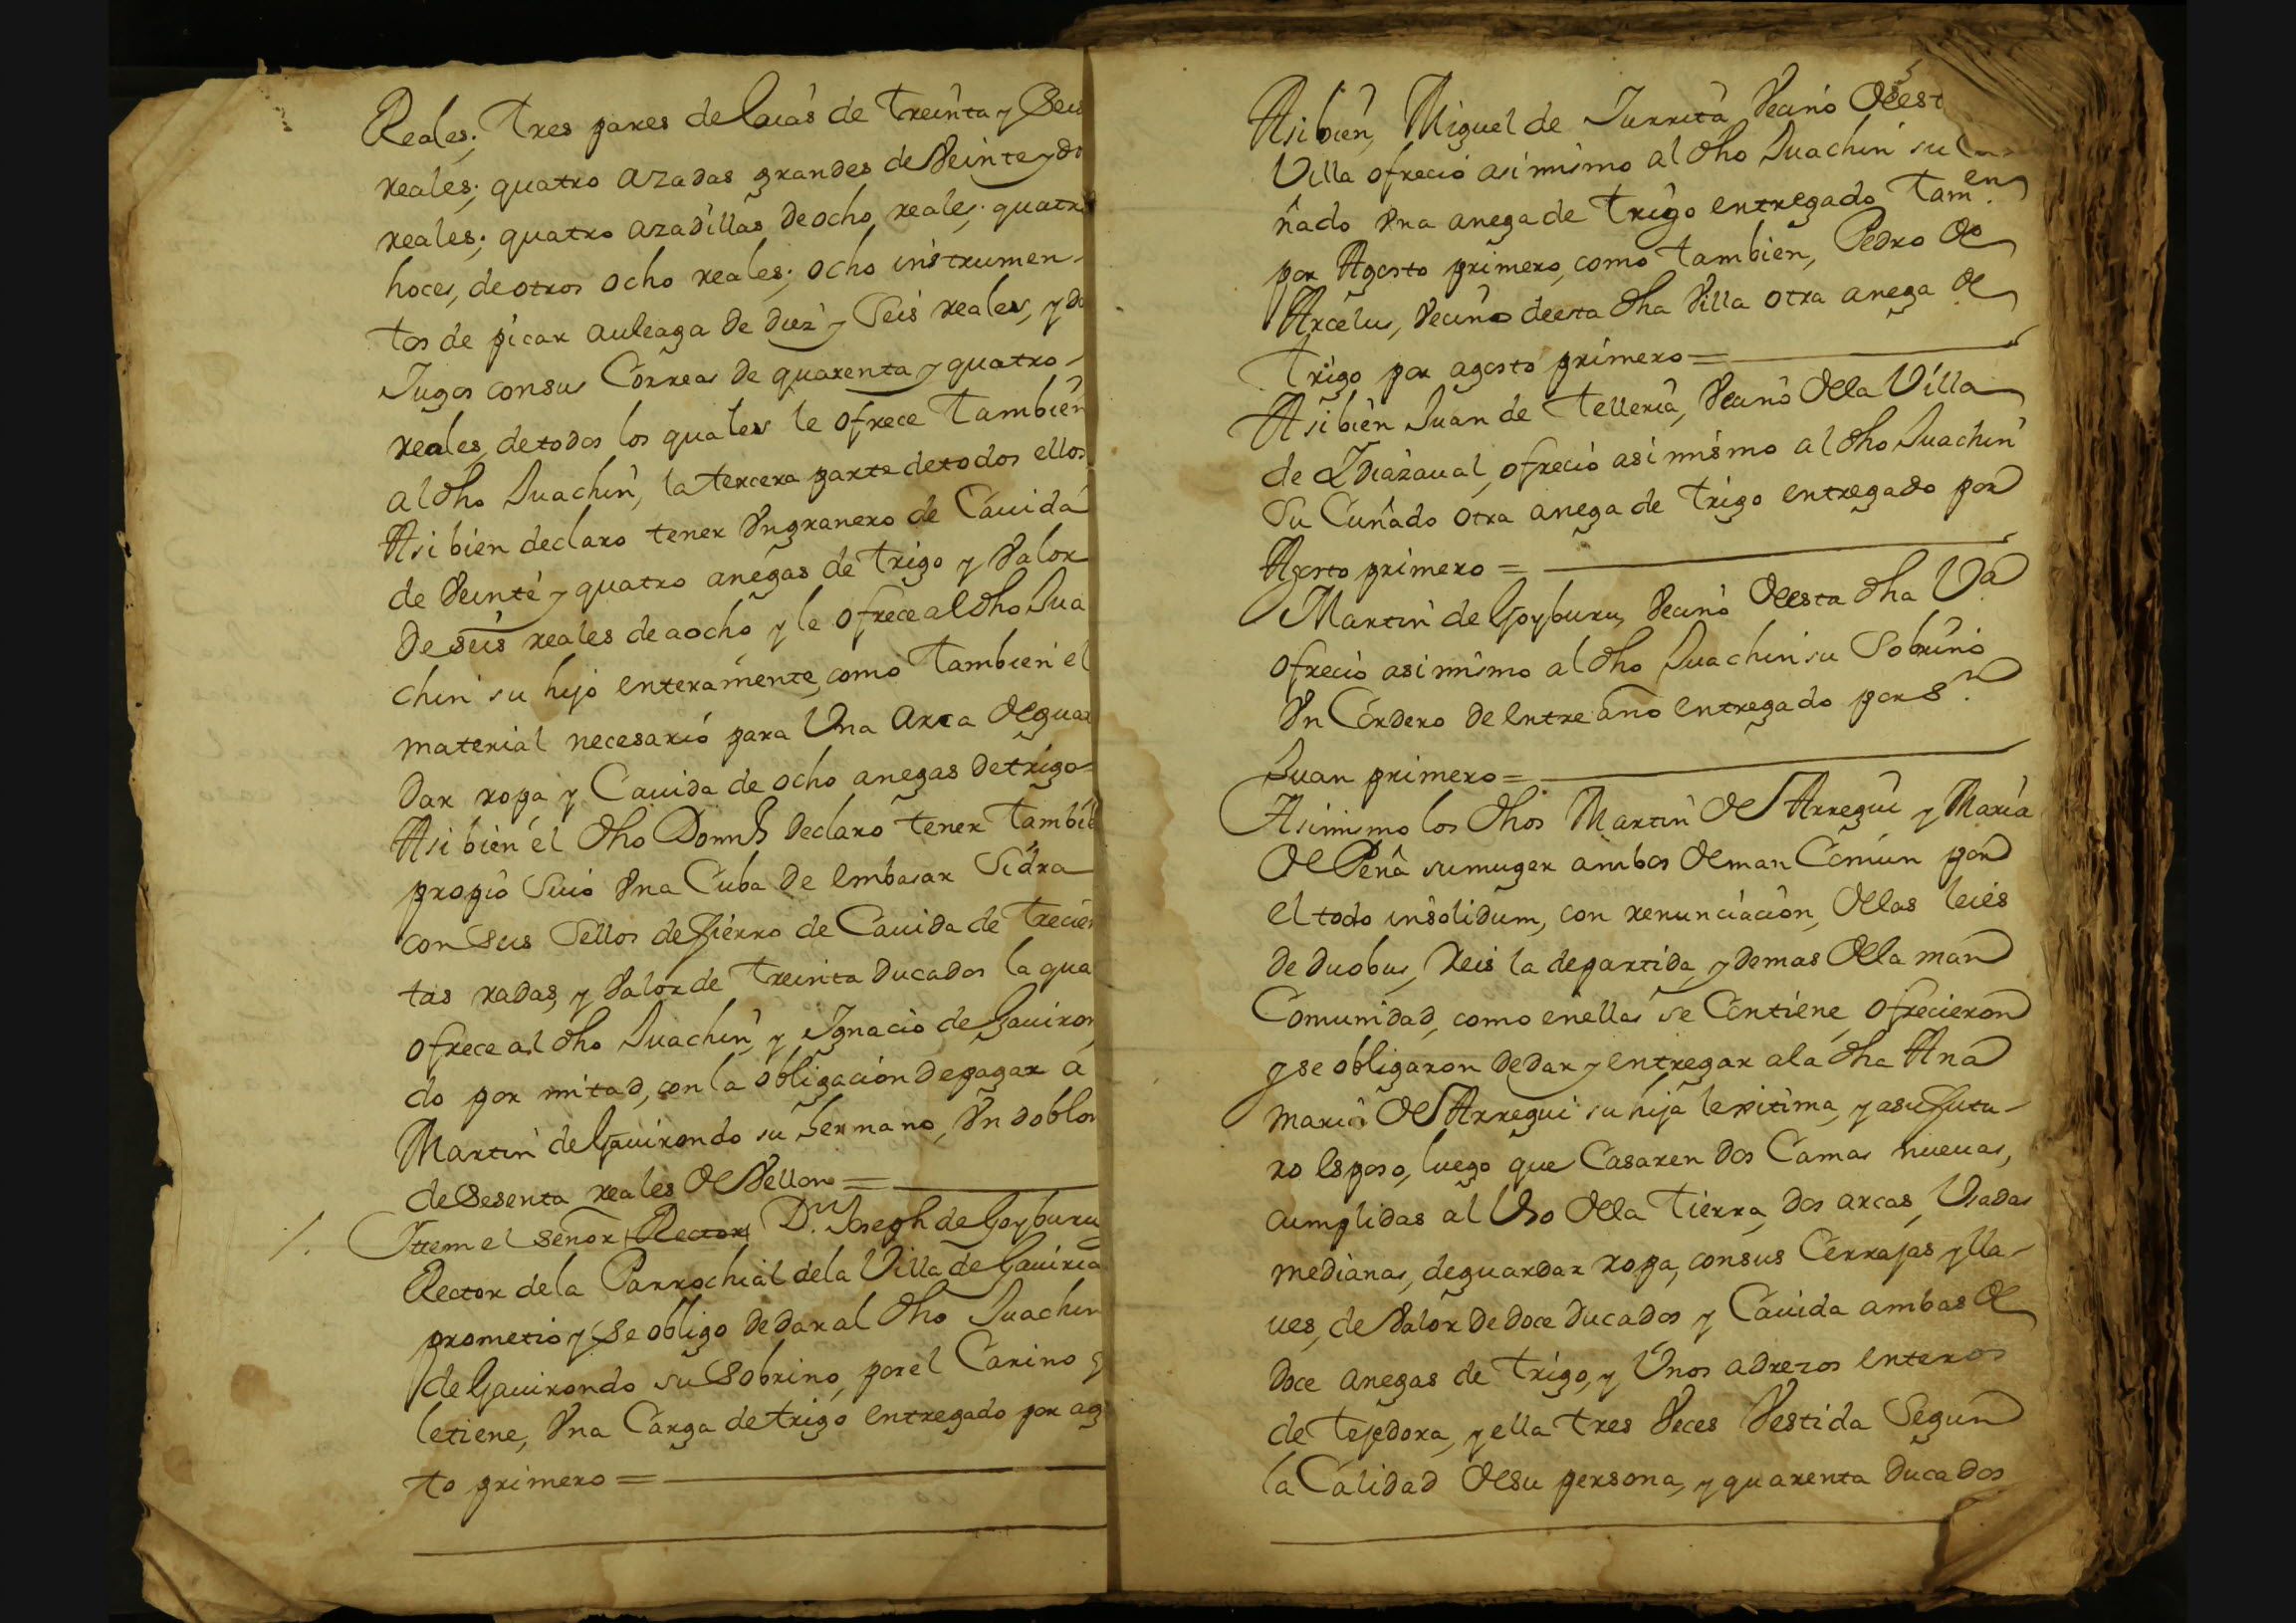 Reales; tres pares de laias de treinta y seis
reales; quatro azadas grandes de Veinte y do
reales; quatro azadillas de ocho reales; quatro
hoces, de otros ocho reales; ocho instrumen-
tos de picar auleaga de diez y seis reales, y do
Jugos con sus Correas de quarenta y quatro-
reales, de todos los quales le ofrece tambien
al dho Juachin, la tercera parte de todos ellos
Asi bien declaro tener Vn granero de Cauida
de Veinte y quatro anegas de trigo y Valor
de seis reales de a ocho, y le ofrece al dho Jua
chin su hijo enteramente, como tambien el
material necesario para Vna arca de guar
dar ropa y Cauida de ocho anegas de trigo=
Asi bien el dho Domns declaro tener tambie
propio suio Vna Cuba de embasar Sidra
con seis sellos de fierro de Cauida de trecien
tas radas, y Valor de treinta ducados la qua
ofrece al dho Juachin, y Ignacio de Gauiron
do por mitad, con la obligacion de pagar a
Martin de Gauirondo su hermano, Vn doblon
de Sesenta reales de Vellon=
/. Ittem el señor Rector Dn. Joseph de Goyburu
Rector de la Parrochial de la Villa de Gauiria
prometio y se obligo de dar al dho Juachin
de Gauirondo su Sobrino, por el Carino q
le tiene, Vna Carga de trigo entregado por ag
to primero=
Asi bien, Miguel de Jurrita Vecino de est
Villa ofrecio asi mismo al dho Juachin su
ñado Vna anega de trigo entregado tamen.
por Agosto primero, como tambien, Pedro de
Arcelus, Vecino de esta dha Villa otra anega de
trigo por agosto primero=
Asi bien Juan de Telleria, Vecino de la Villa
de Ydiazaual, ofrecio asi mismo al dho Juachin
su Cuñado otra anega de trigo entregado por
Agosto primero=
Martin de Goyburu, Vecino de esta dha Va
ofrecio asi mismo al dho Juachin su Sobrino
Vn Cordero de entre año entregado por Sn.
Juan primero=
Asimismo los dhos Martin de Arregui y Maria
de Peña su muger ambos de man Comun por
el todo insolidum, con renunciacion, de las leies
de duobus, Reis la departida, y demas de la man
Comunidad, como en ellas se Contiene, ofrecieron
y se obligaron de dar y entregar a la dha Ana
maria de Arregui su hija lexitima, y a su futu-
ro esposo, luego que Casaren dos Camas nueuas,
cumplidas al Vso de la tierra, dos arcas, Vsadas
medianas, de guardar ropa, con sus Cerrajas y lla-
ues, de Valor de doce ducados y Cauida ambas de
doce anegas de trigo, y Vnos adrezos enteros
de tejedora, y ella tres Veces Vestida Segun
la Calidad de su persona, y quarenta ducados